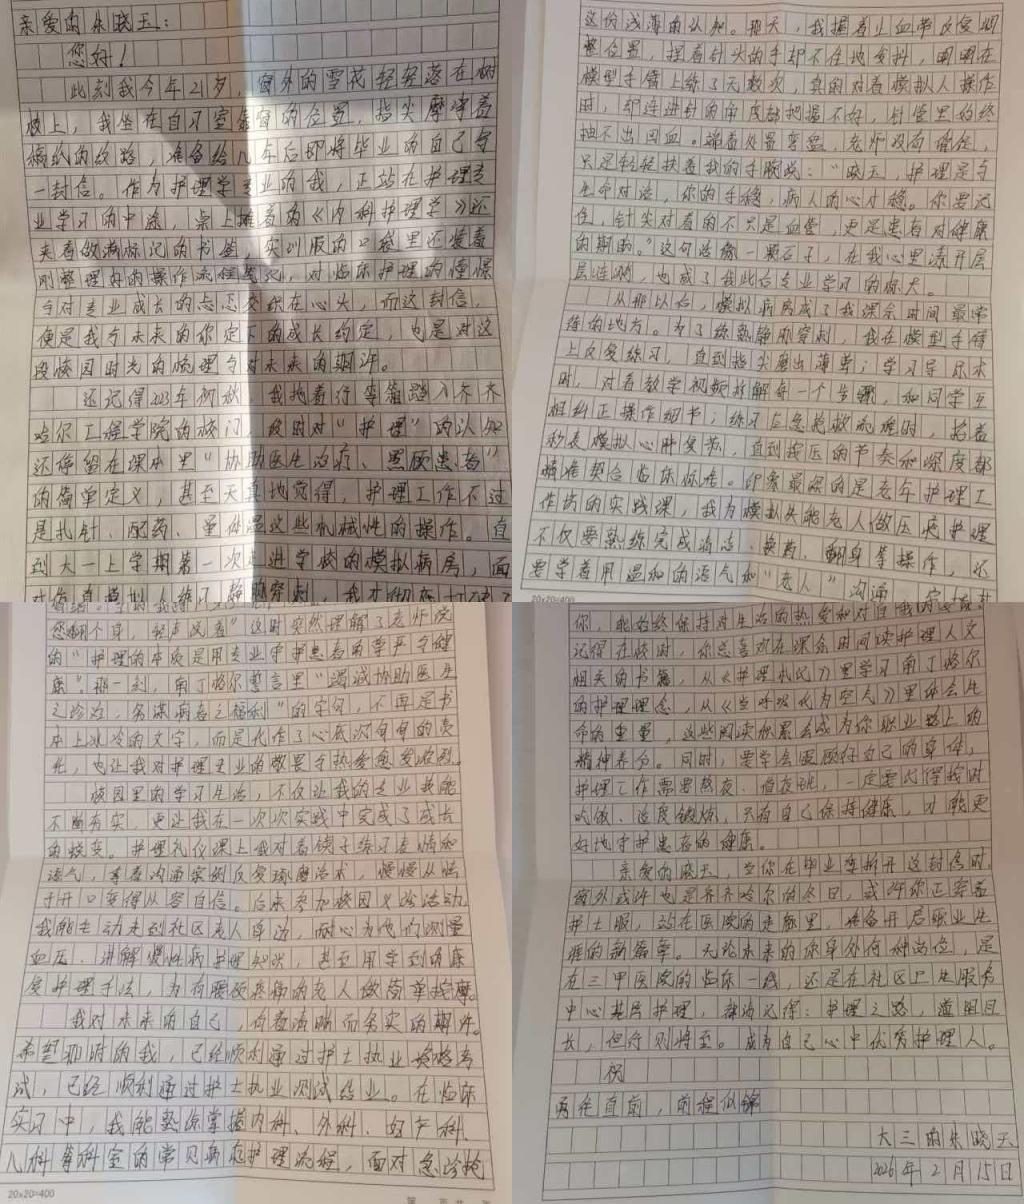 亲爱的朱晓玉:
您好!
此刻我今年21岁,窗外的雪花轻轻落在树
枝上,我坐在自习室靠窗的位置,指尖摩挲着
稿纸的纹路,准备给几年后即将毕业的自己写
一封信。作为护理学专业的我,正站在护理专
业学习的中途,桌上摊着的《内科护理学》还
夹着做满标记的书签,实训服的口袋里还装着
刚整理好的操作流程笔记,对临床护理的憧憬
与对专业成长的忐忑交织在心头,而这封信,
便是我与未来的你定下的成长约定,也是对这
段校园时光的梳理与对未来的期许。
还记得2023年初秋,我拖着行李箱踏入齐齐
哈尔工程学院的校门,彼时对“护理”的认知
还停留在课本里“协助医生治疗、照顾患者”
的简单定义,甚至天真地觉得,护理工作不过
是扎针、配药、量体温这些机械性的操作。直
到大一上学期第一次走进学校的模拟病房,面
对仿真模拟人练习静脉穿刺,我才彻底打破了
这份浅薄的认知。那天,我握着止血带反复调
整位置,捏着针头的手却不住地发抖,明明在
模型手臂上练了无数次,真的对着模拟人操作
时,却连进针的角度都把握不好,针管里始终
抽不出回血。端着处置弯盘,老师没有责怪,
只是轻轻扶着我的手腕说:“晓玉,护理是与
生命对话,你的手稳,病人的心才稳。你要记
住,针尖对着的不只是血管,更是患者对健康
的期盼。”这句话像一颗石子,在我心里漾开层
层涟漪,也成了我此后专业学习的灯火。
从那以后,模拟病房成了我课余时间最常
待的地方。为了练熟静脉穿刺,我在模型手臂
上反复练习,直到指尖磨出薄茧;学习导尿术
时,对着教学视频拆解每一个步骤,和同学互
相纠正操作细节;练习应急抢救流程时,掐着
秒表模拟心肺复苏,直到按压的节奏和深度都
精准契合临床标准。印象最深的是老年护理工
作坊的实践课,我为模拟失能老人做压疮护理
不仅要熟练完成消毒、换药、翻身等操作,还
要学着用温和的语气和“老人”沟通,
您翻个身,轻声说着”这时突然理解了老师说
的“护理的本质是用专业守护患者的尊严与健
康”。那一刻,南丁格尔誓言里“竭诚协助医生
之诊治,务谋病者之福利”的字句,不再是书
本上冰冷的文字,而是化作了心底沉甸甸的责
任,也让我对护理专业的敬畏与热爱愈发浓烈。
校园里的学习生活,不仅让我的专业技能
不断夯实,更让我在一次次实践中完成了成长
的蜕变。护理礼仪课上我对着镜子练习表情和
语气,等着沟通案例反复琢磨话术,慢慢从怯
于开口变得从容自信。后来参加校园义诊活动,
我能主动走到社区老人身边,耐心为他们测量
血压、讲解慢性病护理知识,甚至用学到的康
复护理手法,为有腰颈疼痛的老人做简单按摩。
我对未来的自己,有着清晰而务实的期许。
希望那时的我,已经顺利通过护士执业资格考
试,已经顺利通过护士执业测试结业。在临床
实习中,我能熟练掌握内科、外科、妇产科、
儿科等科室的常见病症护理流程,面对急诊抢
你,能始终保持对生活的热爱和对自我的
记得在校时,你总喜欢在课余时间读护理人文
相关的书籍,从《护理札记》里学习南丁格尔
的护理理念,从《当呼吸化为空气》里体会生
命的重量,这些阅读积累会成为你职业路上的
精神养分。同时,要学会照顾好自己的身体,
护理工作需要熬夜、值夜班,一定要记得按时
吃饭、适度锻炼,只有自己保持健康,才能更
好地守护患者的健康。
亲爱的晓玉,当你在毕业季拆开这封信时,
窗外或许也是齐齐哈尔的冬日,或许你正穿着
护士服,站在医院的走廊里,准备开启职业生
涯的新篇章。无论未来的你身处何种岗位,是
在三甲医院的临床一线,还是在社区卫生服务
中心基层护理,都请记得:护理之路,道阻且
长,但行则将至。成为自己心中优秀护理人。
祝
勇往直前,前程似锦
大三的朱晓玉
2026年2月15日
20×20=400
20×20=400